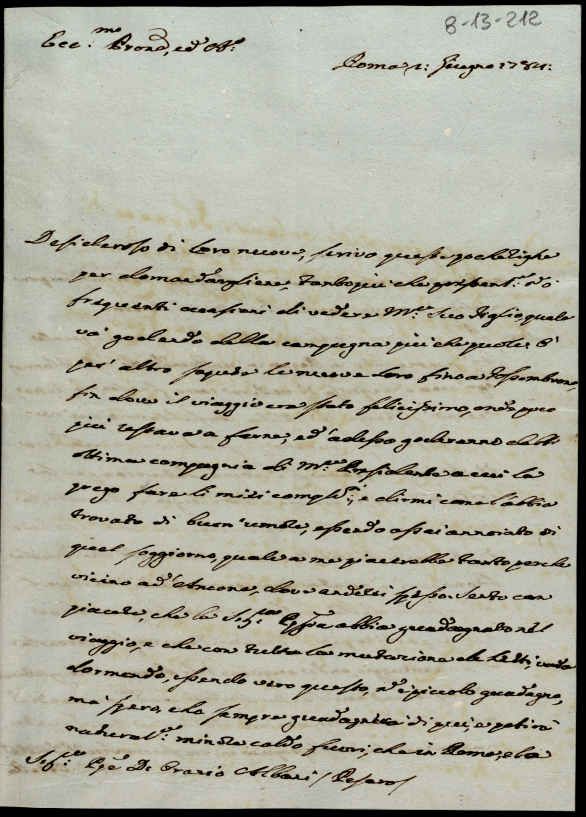 8-13-212
Ecc.mo Prond, ed A.o
Roma 2: Giugno 1784:
Desideroso di loro nuove, scrivo queste poche righe
per domandargliene, tanto più che present.e nō ò
frequenti occasioni di vedere M.r Suo Figlio, quale
và godendo della campagna più che puole. Ò
per altro sapute le nuove loro fino a Fossombrone,
fin dove il viaggio era stato felicissimo, onde poco
più restava a farne, ed adesso goderanno dell'
ottima compagnia di M.r Presidente a cui la
prego fare li miei compl.ti, e dirmi come l'abbia
trovato di buon umore, essendo assai annoiato di
quel soggiorno, quale a me piacerebbe tanto perche
vicino ad Ancona, dove anderei spesso. Sento con
piacere, che la Sig.ra Pnpssa abbia guadagnato nel
viaggio, e che con tutta la mutazione de letti, vada
dormendo, essendo vero questo, nō è piccolo guadagno,
mà spero, che sempre guadagnerà di più, e patirà
natural.e minore caldo fuori, che in Roma, e la
Sig.r Ppe D. Orazio Albani / Pesaro /